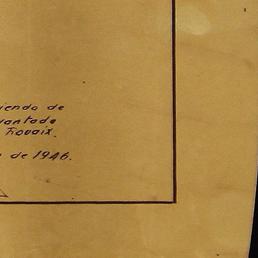 iendo de
vantado
Rovaix.
de 1946.